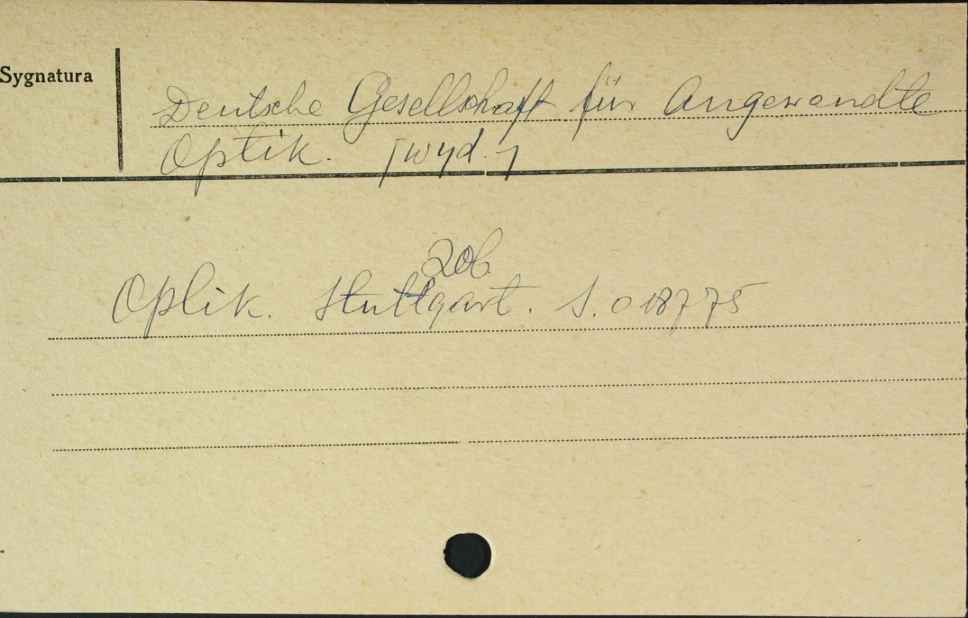 Sygnatura
Deutsche Gesellschaft für Angewandte
Optik. [wyd.]
zob
Optik. Stuttgart. S. 018775